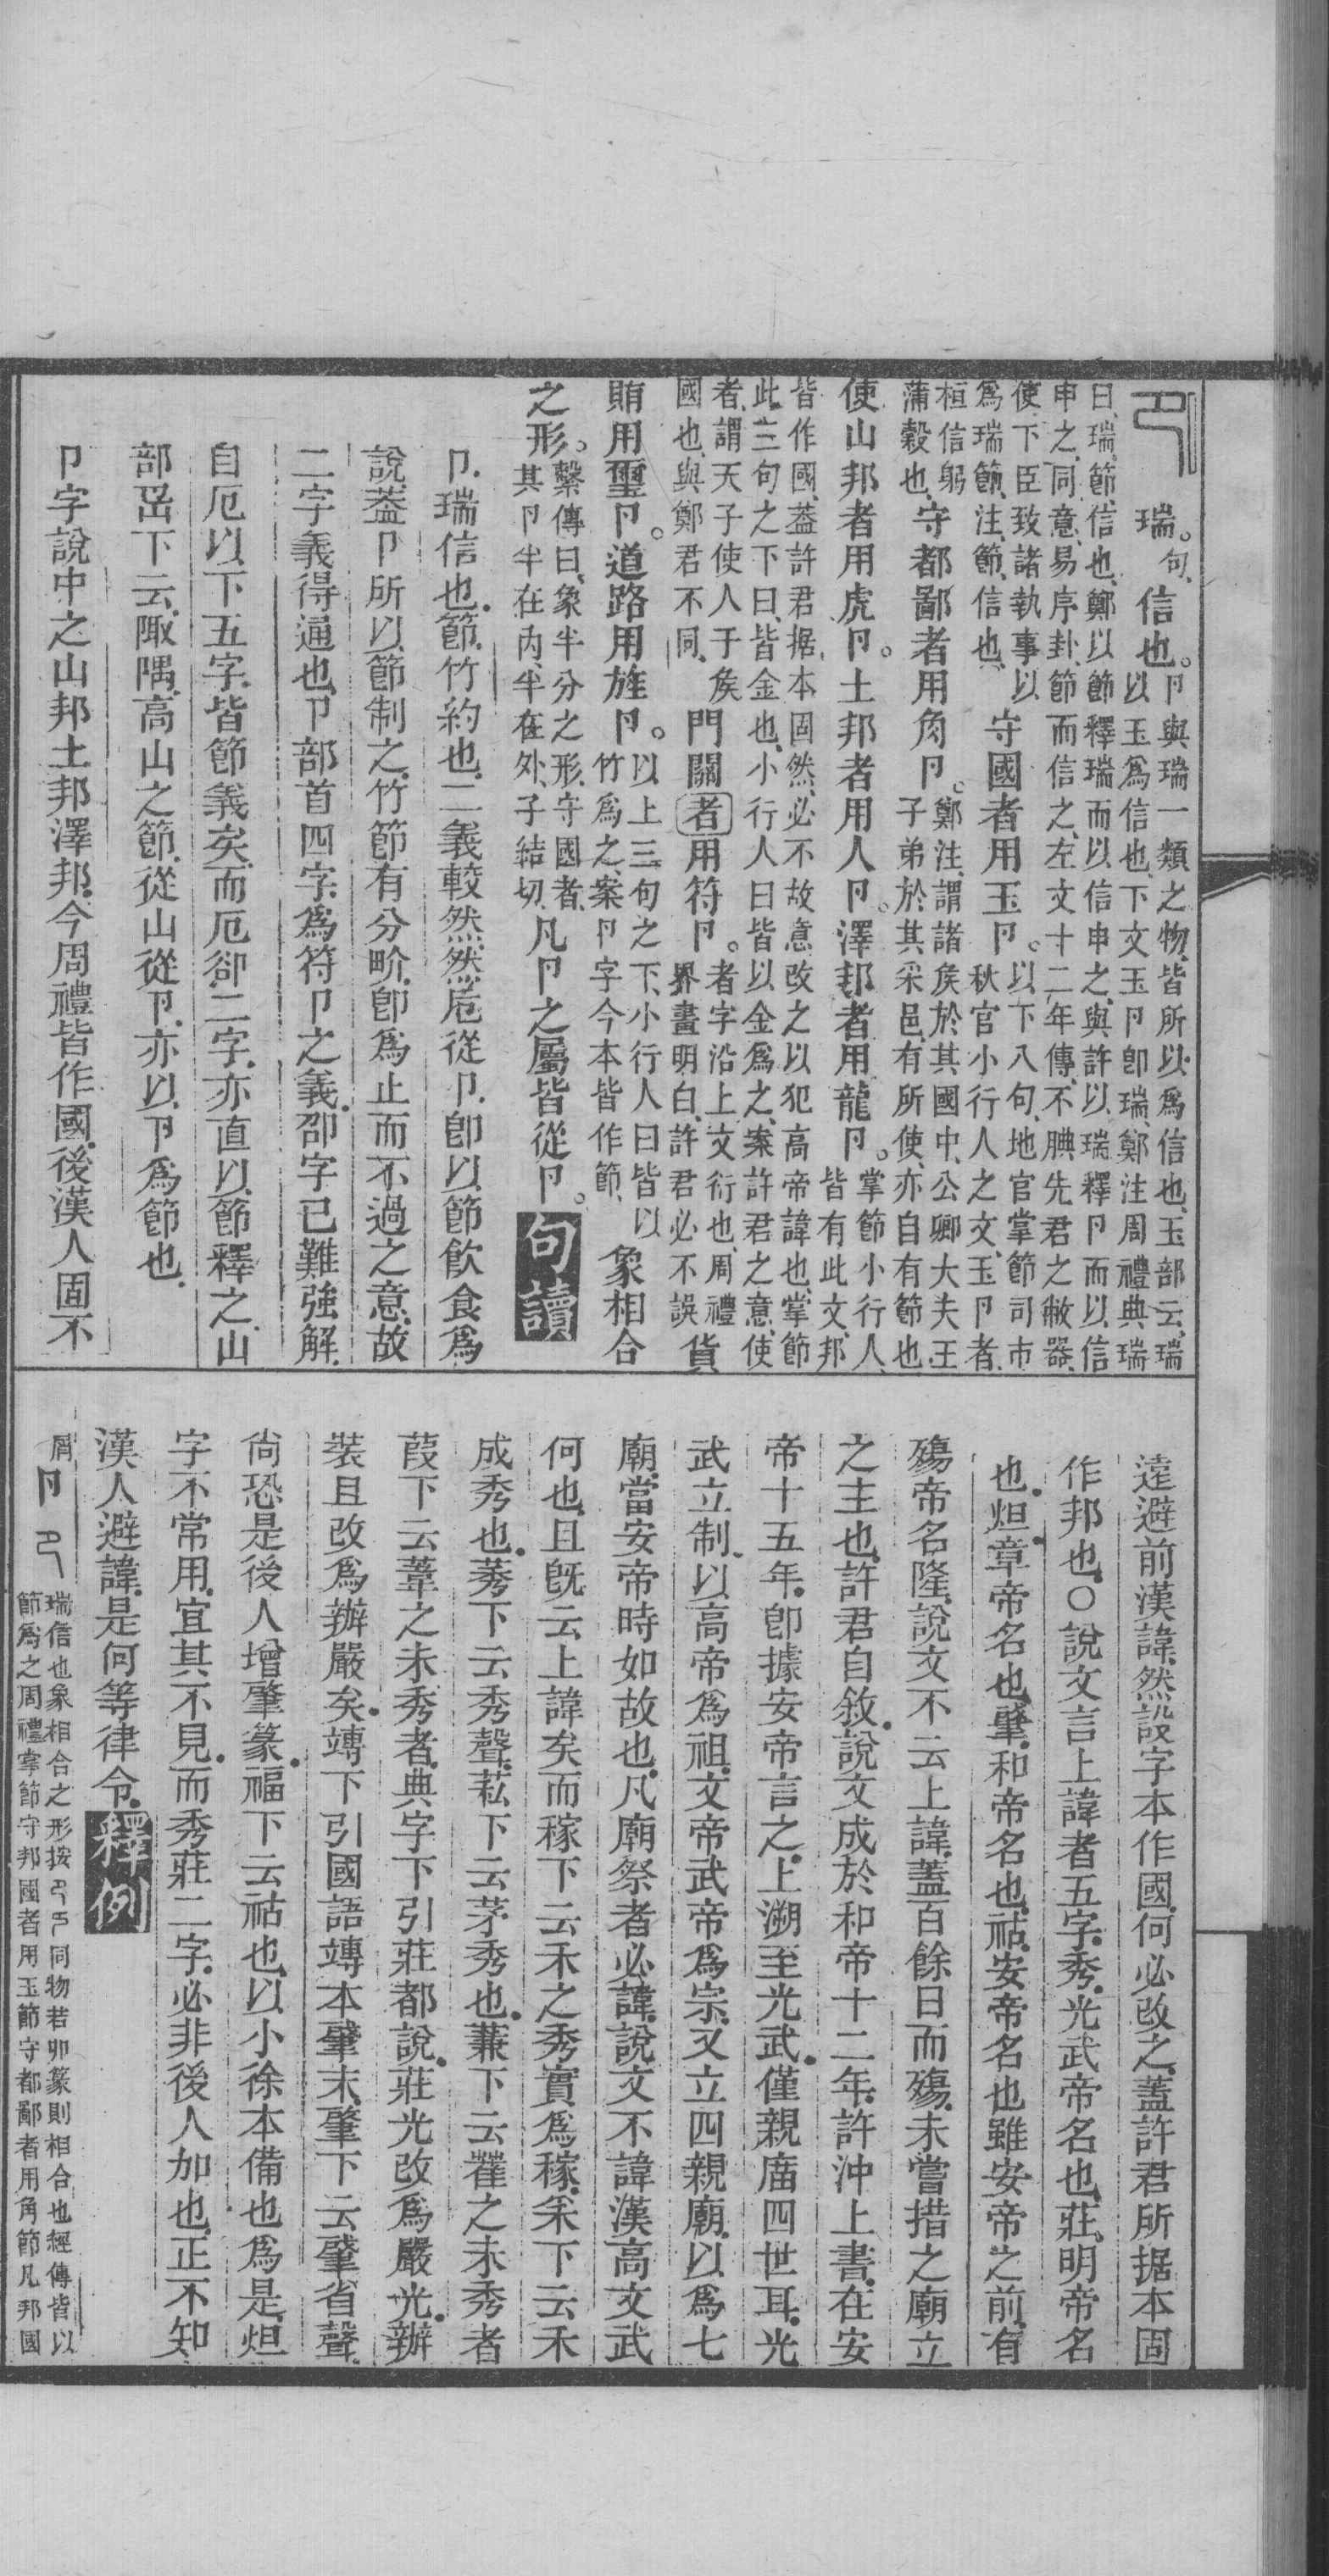 瑞。句、信也。卪與瑞一類之物、皆所以爲信也、玉部云、瑞
以玉爲信也、下文玉卪卽瑞、鄭注周禮典瑞
曰、瑞、節信也、鄭以節釋瑞而以信申之、與許以瑞釋卪而以信
申之、同意、易序卦、節而信之、左文十二年傳、不腆先君之敝器、
使下臣致諸執事、以爲瑞節、注、節、信也、守國者用玉卪。以下八句、地官掌節司市
秋官小行人之文、玉卪者、
桓信躬
蒲穀也、守都鄙者用角卪。鄭注、謂諸矦於其國中、公卿大夫王
子弟於其采邑、有所使、亦自有節也
使山邦者用虎卪。土邦者用人卪。澤邦者用龍卪。掌節小行人、
皆有此文、邦
皆作國、葢許君据本固然、必不故意改之以犯高帝諱也、掌節
此三句之下曰、皆金也、小行人曰皆以金爲之、案許君之意、使
者、謂天子使人于矦
國也、與鄭君不同、門關者用符卪。者字沿上文衍也、周禮
界畫明白、許君必不誤貨
賄用璽卪。道路用旌卪。以上三句之下、小行人曰皆以
竹爲之、案卪字今本皆作節、象相合
之形。繫傳曰、象半分之形、守國者、
其卪半在内、半在外、子結切、凡卪之屬皆從卪。句讀
卪、瑞信也、節、竹約也、二義較然、然卮從卪、卽以節飮食爲
說、葢卪所以節制之、竹節有分畍、卽爲止而不過之意、故
二字義得通也、卪部首四字、爲符卪之義、卲字已難強解、
自厄以下五字、皆節義矣、而厄卻二字、亦直以節釋之、山
部岊下云、陬隅、高山之節、從山從卪、亦以卪爲節也、
卪字說中之山邦土邦澤邦、今周禮皆作國、後漢人固不
遠避前漢諱、然設字本作國、何必改之、葢許君所据本固
作邦也、○說文言上諱者五字、秀、光武帝名也、莊、明帝名
也、炟、章帝名也、肇、和帝名也、祜、安帝名也、雖安帝之前、有
殤帝名隆、說文不云上諱、蓋百餘日而殤、未嘗措之廟立
之主也、許君自敘、說文成於和帝十二年、許沖上書、在安
帝十五年、卽據安帝言之、上溯至光武、僅親廟四世耳、光
武立制、以高帝爲祖、文帝武帝爲宗、又立四親廟、以爲七
廟、當安帝時如故也、凡廟祭者必諱、說文不諱漢高文武
何也、且旣云上諱矣、而稼下云禾之秀實爲稼、采下云禾
成秀也、莠下云秀聲、菘下云茅秀也、蒹下云雚之未秀者
葭下云葦之未秀者、典字下引莊都說、莊光改爲嚴光、辦
裝且改爲辦嚴矣、竱下引國語竱本肇末、肇下云肈省聲、
尙恐是後人增肇篆、福下云祜也、以小徐本備也爲是、炟
字不常用、宜其不見、而秀莊二字、必非後人加也、正不知
漢人避諱、是何等律令、釋例
屑卪瑞信也象相合之形按同物若卯篆則相合也經傳皆以
節爲之周禮掌節守邦國者用玉節守都鄙者用角節凡邦國